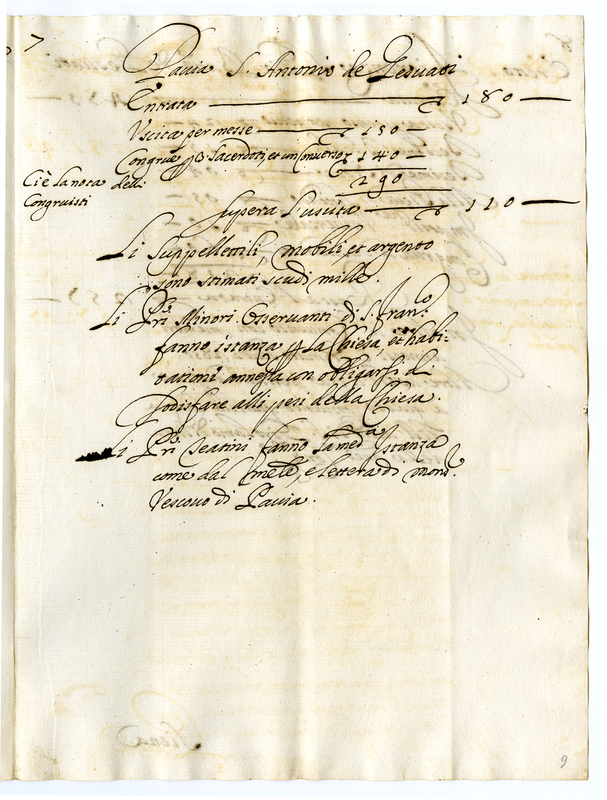 7
Pavia S. Antonio de Gesuati
Entrata 180
Vscita per messe 150
Congrue p 3. Sacerdoti, et un Conuerso 140
290
Ci è la nota delli
Congruisti
Supera l'uscita 110
Li Suppellettili, mobili et argento
sono stimati scudi mille.
Li Pri Minori Osseruanti di S. Franco
fanno istanza p la Chiesa, et habi-
tationi annessa con obligarsi di
sodisfare alli pesi della Chiesa.
Li Pri Teatini fanno la meda Istanza
come dal mele, e lettera di monr
Vescouo di Pauia.
9